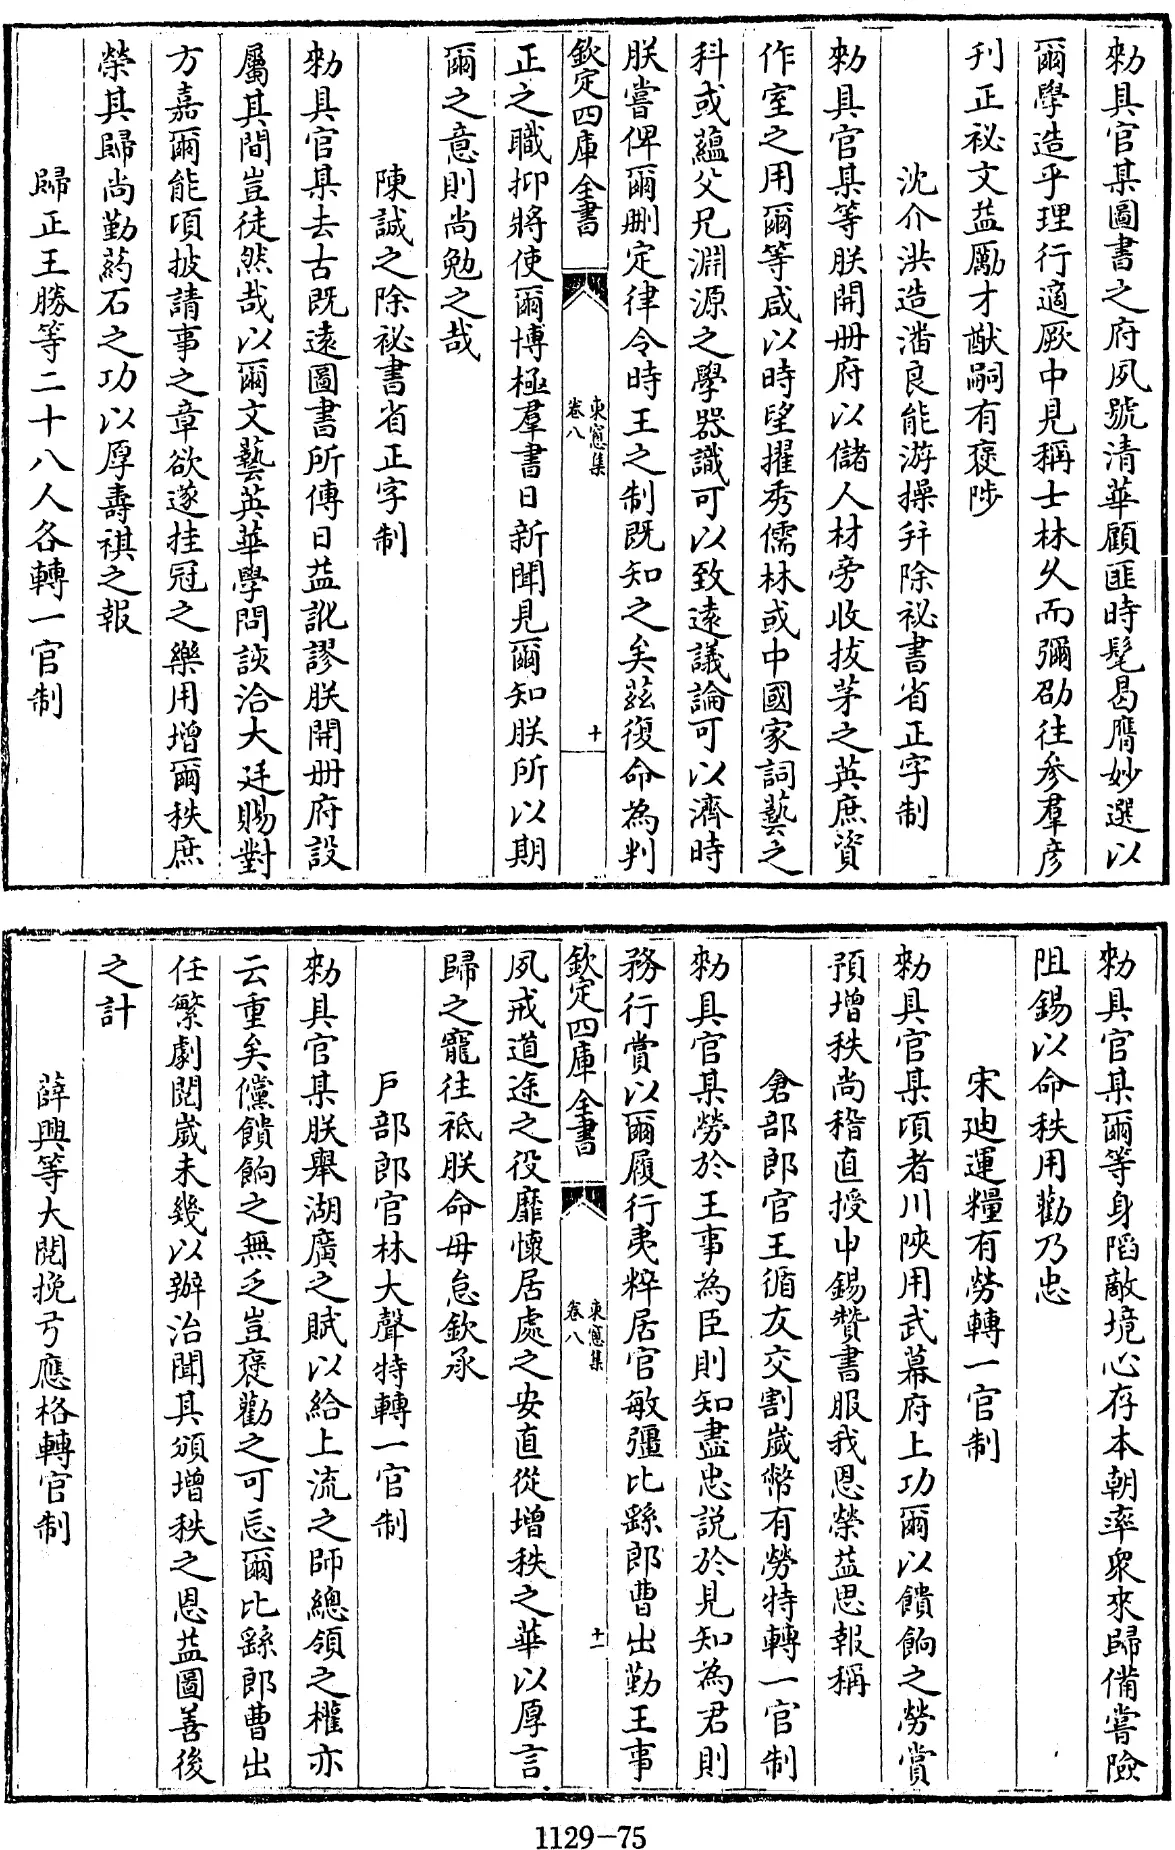 勅具官某圖書之府夙號清華顧匪時髦曷膺妙選以
爾學造乎理行適厥中見稱士林久而彌劭往參羣彦
刋正祕文益勵才猷嗣有褒陟
沈介洪造潘良能游操并除祕書省正字制
勅具官某等朕開册府以儲人材旁收拔茅之英庶資
作室之用爾等咸以時望擢秀儒林或中國家詞藝之
科或蘊父兄淵源之學器識可以致遠議論可以濟時
朕嘗俾爾刪定律令時王之制既知之矣兹復命為判
欽定四庫全書
東窻集
卷八
十
正之職抑將使爾博極羣書日新聞見爾知朕所以期
爾之意則尚勉之哉
陳誠之除祕書省正字制
勅具官某去古既遠圖書所傳日益訛謬朕開册府設
屬其間豈徒然哉以爾文藝英華學問該洽大廷賜對
方嘉爾能項披請事之章欲遂挂冠之樂用增爾秩庶
榮其歸尚勤葯石之功以厚壽祺之報
歸正王勝等二十八人各轉一官制
勅具官某爾等身陷敵境心存本朝率衆來歸備嘗險
阻錫以命秩用勸乃忠
宋廸運糧有勞轉一官制
勅具官某項者川陜用武幕府上功爾以饋餉之勞賞
預增秩尚稽直授申錫贊書服我恩榮益思報稱
倉部郎官王循友交割歲幣有勞特轉一官制
勅具官某勞於王事為臣則知盡忠説於見知為君則
務行賞以爾履行夷粹居官敏彊比繇郎曹出勤王事
欽定四庫全書
東窻集
卷八
十一
夙戒道途之役靡懷居處之安直從增秩之華以厚言
歸之寵往祗朕命毋怠欽承
戸部郎官林大聲特轉一官制
勅具官某朕舉湖廣之賦以給上流之師總領之權亦
云重矣儻饋餉之無乏豈褒勸之可忘爾比繇郎曹出
任繁劇閲歲未幾以辦治聞其頒增秩之恩益圖善後
之計
薛興等大閲挽弓應格轉官制
1129-75